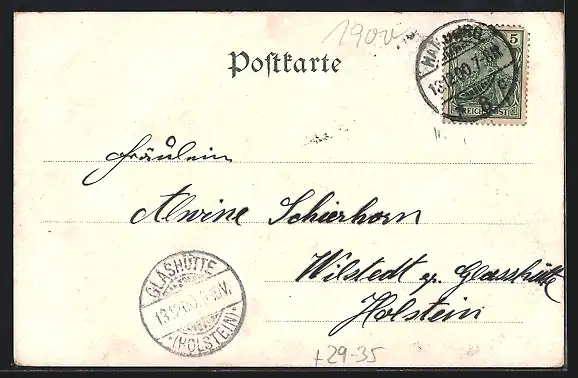 1900
Postkarte
5
HAMBURG
13.12.00.7-8N
REICHSPOST
Fräulein
Alwine Schierhorn
Wilstedt p. Glasshütte
Holstein
GLASHÜTTE
13.12.00
(HOLSTEIN)
+29-35